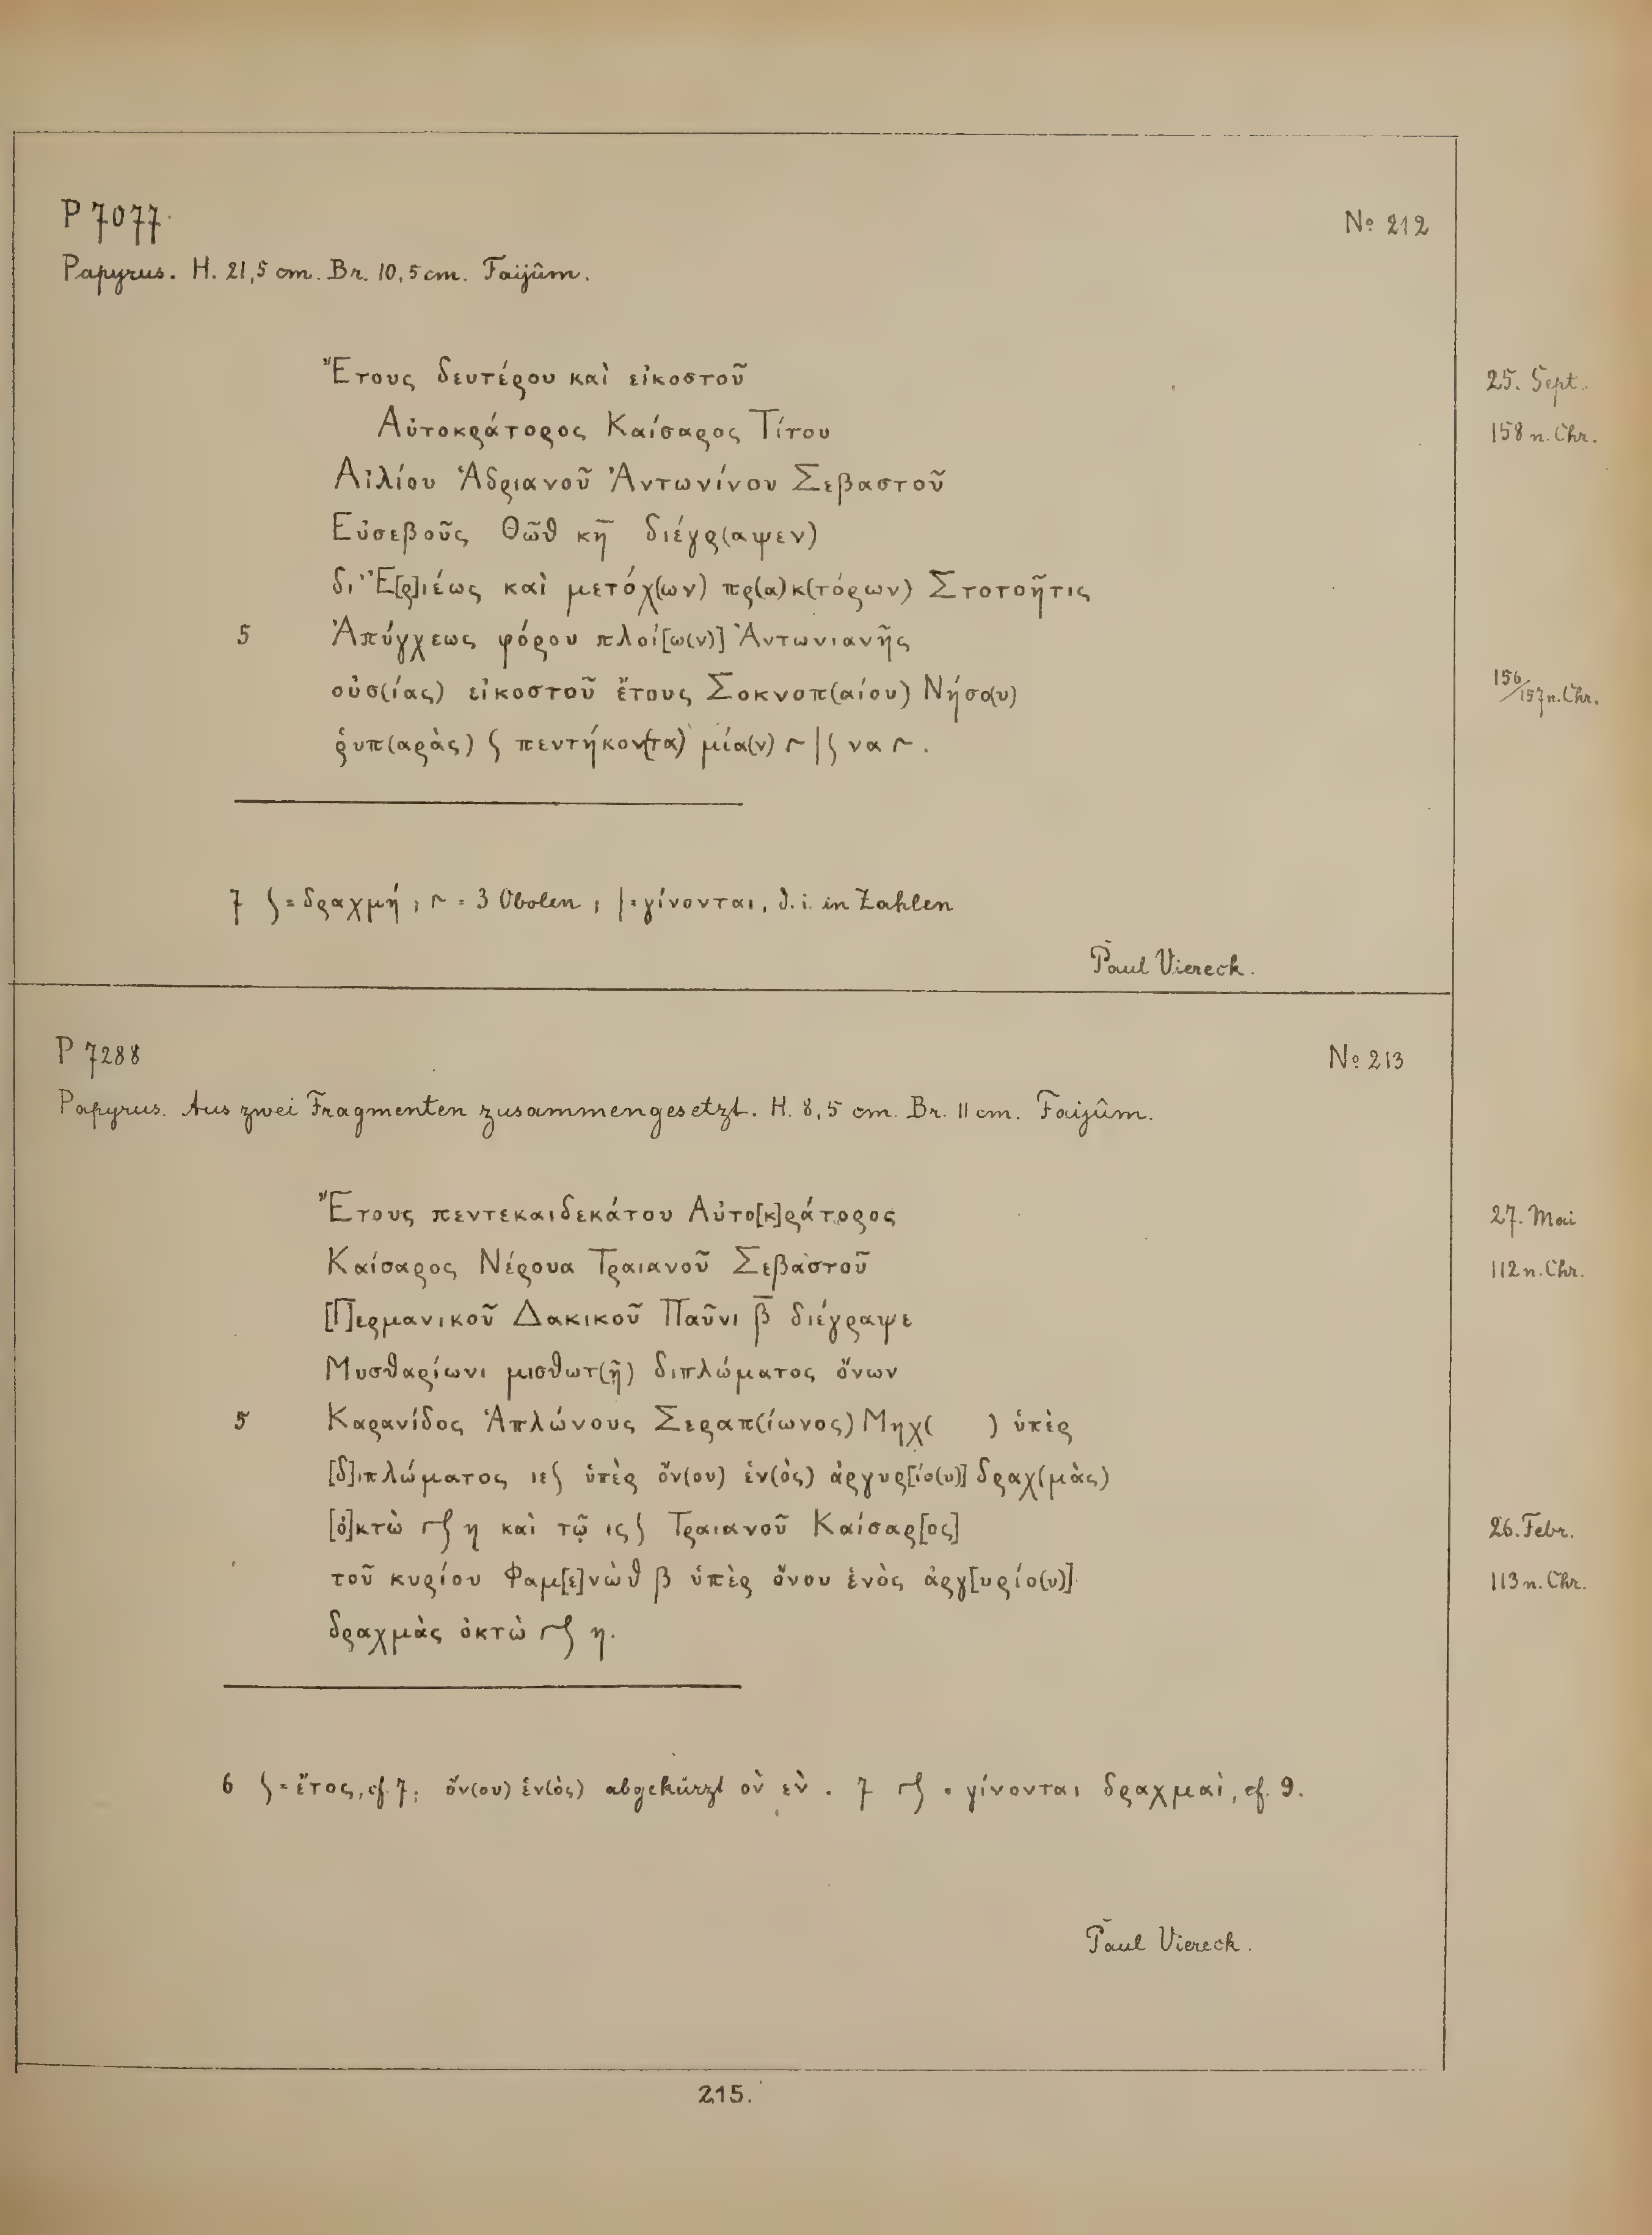 P 7077.
No 212
Papyrus. H. 21,5 cm. Br. 10,5 cm. Faijûm.
Ἔτους δευτέρου καὶ εἰκοστοῦ 25. Sept.
Αὐτοκράτορος Καίσαρος Τίτου 158 n. Chr.
Αἰλίου Ἁδριανοῦ Ἀντωνίνου Σεβαστοῦ
Εὐσεβοῦς Θῶθ κη̅ διέγρ(αψεν)
δι' Ἑ[ρ]ιέως καὶ μετόχ(ων) πρ(α)κ(τόρων) Στοτοῆτις
5 Ἀπύγχεως φόρου πλοί[ω(ν)] Ἀντωνιανῆς
οὐσ(ίας) εἰκοστοῦ ἔτους Σοκνοπ(αίου) Νήσο(υ) 156/157 n. Chr.
ῥυπ(αρὰς) ʃ πεντήκον(τα) μία(ν) ⌐ | ʃ να ⌐.
7 ʃ = δραχμή; ⌐ = 3 Obolen; | = γίνονται, d. i. in Zahlen
Paul Viereck.
P 7288
No 213
Papyrus. Aus zwei Fragmenten zusammengesetzt. H. 8,5 cm. Br. 11 cm. Faijûm.
Ἔτους πεντεκαιδεκάτου Αὐτο[κ]ράτορος 27. Mai
Καίσαρος Νέρουα Τραιανοῦ Σεβαστοῦ 112 n. Chr.
[Γ]ερμανικοῦ Δακικοῦ Παῦνι β̅ διέγραψε
Μυσθαρίωνι μισθωτ(ῇ) διπλώματος ὄνων
5 Καρανίδος Ἀπλώνους Σεραπ(ίωνος) Μηχ( ) ὑπὲρ
[δ]ιπλώματος ιεʃ ὑπὲρ ὄν(ου) ἑν(ὸς) ἀργυρ[ίο(υ)] δραχ(μὰς)
[ὀ]κτὼ ⌐ʃ η καὶ τῷ ιςʃ Τραιανοῦ Καίσαρ[ος] 26. Febr.
τοῦ κυρίου Φαμ[ε]νὼθ β ὑπὲρ ὄνου ἑνὸς ἀργ[υρίο(υ)] 113 n. Chr.
δραχμὰς ὀκτὼ ⌐ʃ η.
6 ʃ = ἔτος, cf. 7; ὄν(ου) ἑν(ὸς) abgekürzt οὺ εὺ. 7 ⌐ʃ = γίνονται δραχμαὶ, cf. 9.
Paul Viereck.
215.